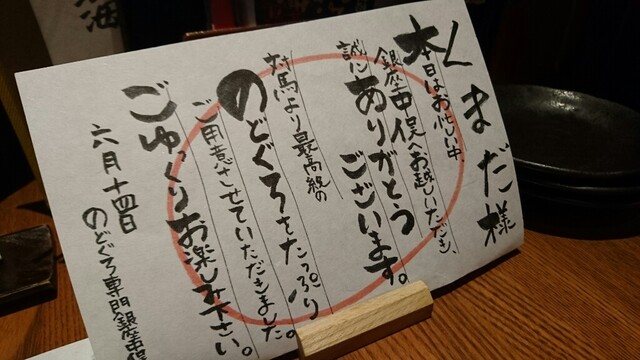 くまだ様
本日はお忙しい中、
銀座中俣へお越しいただき、
誠にありがとう
ございます。
対馬より最高級の
のどぐろをたっぷり
ご用意させていただきました。
ごゆっくりお楽しみ下さい。
六月十四日
のどぐろ専門銀座中俣